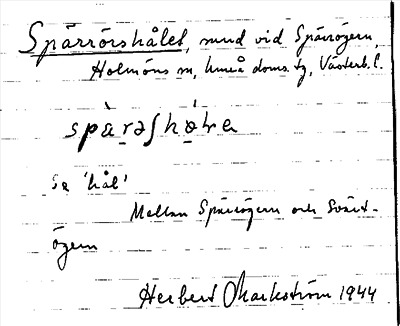 Spärrörshålet, sund vid Spärrögern,
Holmöns sn, Umeå doms. tg, Västerb. l.
spὰrəʃhὰlɐ
Se 'hål'
Mellan Spärrögern och Svart-
ögern
Herbert Markström 1944